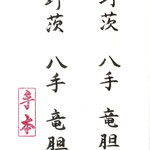 野茨 八手 竜胆
野茨 八手 竜胆
手本